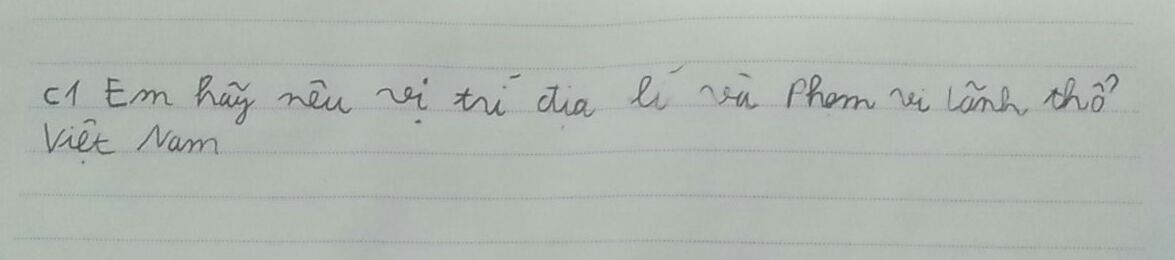 C1 Em hãy nêu vị trí địa lí và phạm vi lãnh thổ
Việt Nam